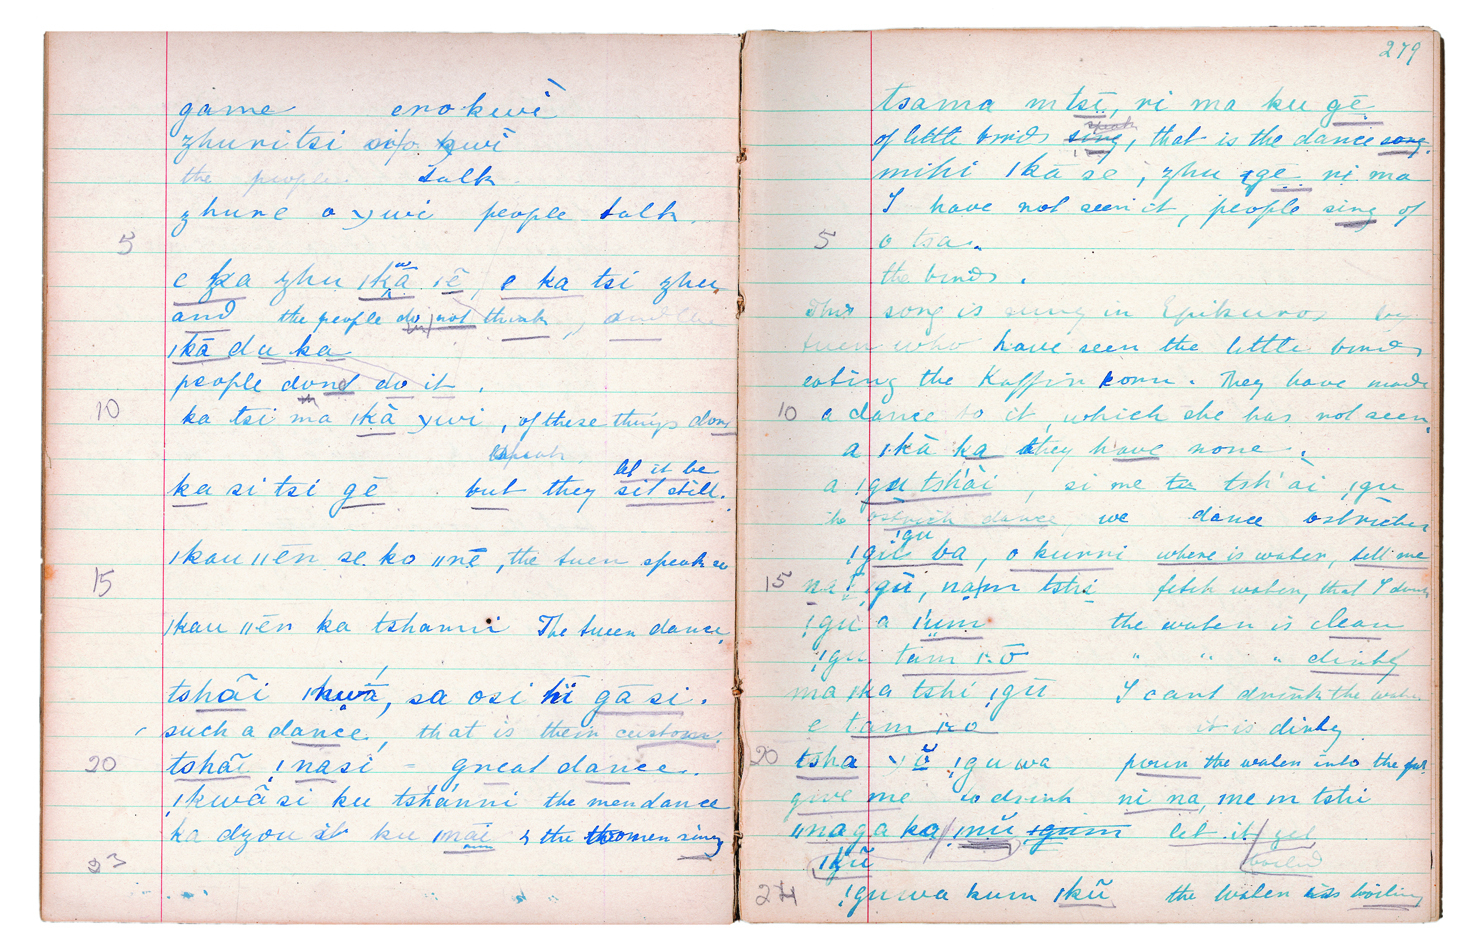 game erokwi
zhuritsi kwi
the people talk
zhure o ɣwi people talk.
5
e ka zhu ǀkã ǀē, e ka tsi zhu
and the people do not think
ǀkā du ka
people dont do it.
10 ka tsi ma ǀkā ɣwi, of these things dont
speak
let it be
ka si tsi gē but they sit still.
15 ǀkau ǁēn se ko ǁnē, the tuen speak so
ǀkau ǁēn ka tshanni The tueen dance,
tshāi ǀkwā, sa osi hï gā si.
such a dance, that is their custom.
20 tshāi ǃnasi = great dance.
ǀkwā si ku tshánni the men dance
ka dzou si ku ǀnai & the women sing
23
279
tsama m tsī, ri ma ku gē
speak
of little birds sing, that is the dance song.
mihi ǀkā se, zhu gē ri ma
I have not seen it, people sing of
5 o tsa.
the birds.
This song is sung in Epikuro, by
tuen who have seen the little birds
eating the Kaffir korn. They have made
10 a dance to it, which she has not seen.
a ǀkā ka they have none.
a ǃgu tshài, si me tsh'ai ǃgu
the ostrich dance, we dance ostriches
ǃgu
ǃgu ba, o kurri where is water, tell me
15 na ǃgū, na m tshi fetch water, that I drink
ǃgu a ǀum the water is clean
ǃgu tam ǀ·ō " " " dirty
ma ǀka tshi ǃgū I cant drink the water
e tam ǀ·o it is dirty
20 tsha ǃgu wa pour the water into the
give me to drink ni na, me m tshi
ǁnaga ka ǀnŭ ǀgum let it get
ǀkŭ boiled
24 ǃgu wa kum ǀkŭ the water is boiling